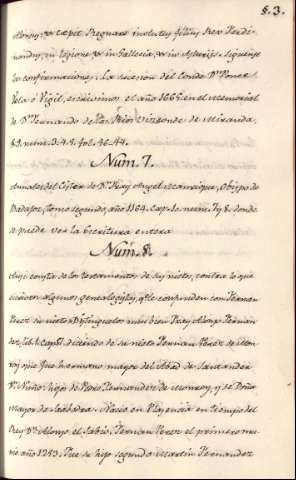 §. 3.
Alonso, & cæpit Regnare
nandus, in Legione & in Gallecia, & in Asturijs. Siguense
las confirmaciones. La sucesion del Conde Dn. Ponce
Vela ò Vigil, escrivimos el año 1665. en el Memorial
de Dn. Fernando de los Rios Vizconde de Miranda,
§3. num. 3. 4.
Num. 7.
Annales del Cister de Dn. Fray Angel Manrique, Obispo de
Badajoz, tomo segundo, año 1164. cap. 1. num. 7 y 8. donde
se puede ver la Escritura entera
Num. 8.
Assi consta de los testamentos de sus nietos, contra lo que
algunos genealogistas, qe. le confunden con Fernan
Perez su nieto. Distinguelos muy bien Fray Alonso Fernan
dez, lib. 1. cap. diciendo de su nieto Fernan Perez de Mon
roy, que fue hermano mayor del Abad de Santander
Dn. Nuño: hijos de Fernandez de Monroy, y de Doña
Mayor de Nacio en Plasencia en tiempo del
Rey Dn. Alonso el Sabio. Fernan Perez el primero mu
rio año 1293. Fue su hijo segundo Martin Fernandez